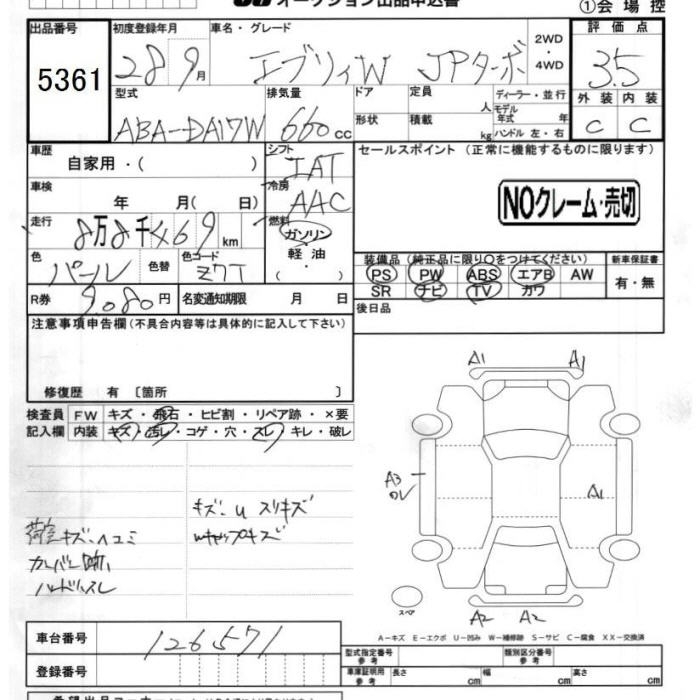 オークション出品申込書
①会場控
出品番号 初度登録年月 車名・グレード 2WD・4WD 評価点
5361 28 9月 エブリィW JPターボ 3.5
型式 排気量 ドア 定員 人 ディーラー・並行 外装 内装
ABA-DA17W 660cc 形状 積載 kg モデル年式 年 ハンドル 左・右 C C
車歴 シフト セールスポイント (正常に機能するものに限ります)
自家用・( ) IAT
車検 冷房
年 月( 日) AAC NOクレーム・売切
走行 燃料
8万8千469km ガソリン
色 色替 色コード 軽油 装備品 (純正品に限り○をつけてください) 新車保証書
パール Z7T ・( ) PS PW ABS エアB AW 有・無
R券 9080円 名変通知期限 月 日 SR ナビ TV カワ
注意事項申告欄(不具合内容等は具体的に記入して下さい) 後日品
修復歴 有 〔箇所 〕
検査員 FW キズ・飛石・ヒビ割・リペア跡・×要
記入欄 内装 キズ・汚レ・コゲ・穴・スレ・キレ・破レ
A1 A1
A3
A1
キズ・U スリキズ
Wキャップキズ
荷室キズ・ヘコミ
スペア
A2 A2
A-キズ E-エクボ U-凹み W-補修跡 S-サビ C-腐食 XX-交換済
車台番号 126571
登録番号 型式指定番号 参考 類別区分番号 参考
車庫証明用 参考 長さ cm 幅 cm 高さ cm